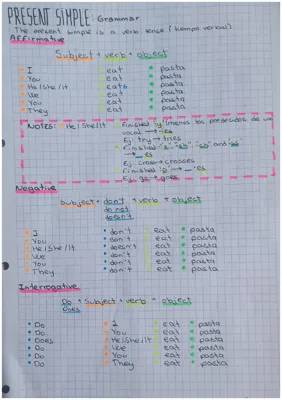 PRESENT SIMPLE: Grammar
The present simple is a verb tense (tiempo verbal)
Affirmative
Subject + verb + object
I eat pasta
You eat pasta
He/She/It eats pasta
We eat pasta
You eat pasta
They eat pasta
Notes: He/She/It Finished y (menos las precedidas de una
vocal → ies
Ej: try → tries
Finished "s"
→ es
Ej: cross → crosses
Finished "o" → es
Ej: go → goes
Negative
Subject + don't + verb + object
do not
doesn't
I don't eat pasta
You don't eat pasta
He/She/It doesn't eat pasta
We don't eat pasta
You don't eat pasta
They don't eat pasta
Interrogative
Do + Subject + verb + object
Does
Do I eat pasta
Do You eat pasta
Does He/She/It eat pasta
Do We eat pasta
Do You eat pasta
Do They eat pasta